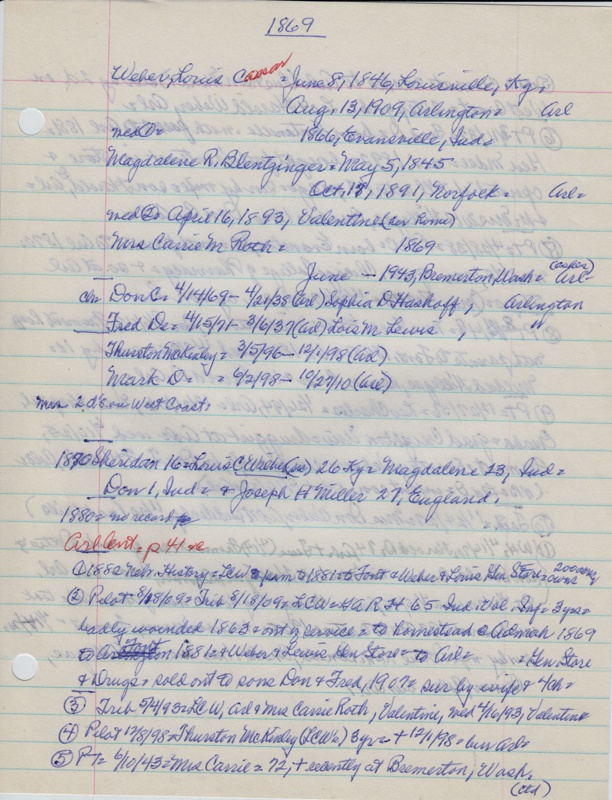 1869
Weber, Louis Caesar = June 8, 1846, Louisville, Ky =
Aug. 13, 1909, Arlington = Arl
med ① = 1866, Evansville, Ind =
Magdalene R. Blentzinger = May 5, 1845
Oct, 1891, Norfolk = Arl =
med ② = April 16, 1893, Valentine
Mrs Carrie M Roth = 1869
June — 1943, Bremerton, Wash = Arl -
(ashes)
ch = Don C = 4/14/69 - 4/21/38 (Arl) Sophia D, Arlington
Fred De = 4/15/71 - 3/6/37 (Arl) Lois M Lewis, "
Thurston McKinley = 3/5/96 - 12/1/98 (Arl)
Mark D = = 6/2/98 - 10/27/10 (Arl)
2, d's on West Coast =
1870 Sheridan 16 = Louis C Weber 26 Ky = Magdalene 23, Ind =
Don 1, Ind = & Joseph H Miller 27, England,
1880 = no record
Arl Cent = p 41 =
① 1882 Nebr. History = LCW = to 1881 = to & Weber & Lewis Gen Store =
② Pilot = Trib 8/18/09 = LCW = GAR H 65 Ind Vol Inf = 3 yrs =
badly wounded 1863 = out of service = to homestead @ Admah 1869
to 1881 = & Weber & Lewis Gen Store = to Arl = = Gen Store
& Drugs = sold out to sons Don & Fred, 1907 = sur by wife & 4 ch =
③ Trib 5/4/93 = LCW, Arl & Mrs Carrie Roth, Valentine, med 4/16/93, Valentine
④ Pilot 12/8/98 = Thurston McKinley (LCW's) 3 yr = + 12/1/98 = bur Arl =
⑤ PT = 6/10/43 = Mrs Carrie = 72, + recently at Bremerton, Wash.
(ctd)